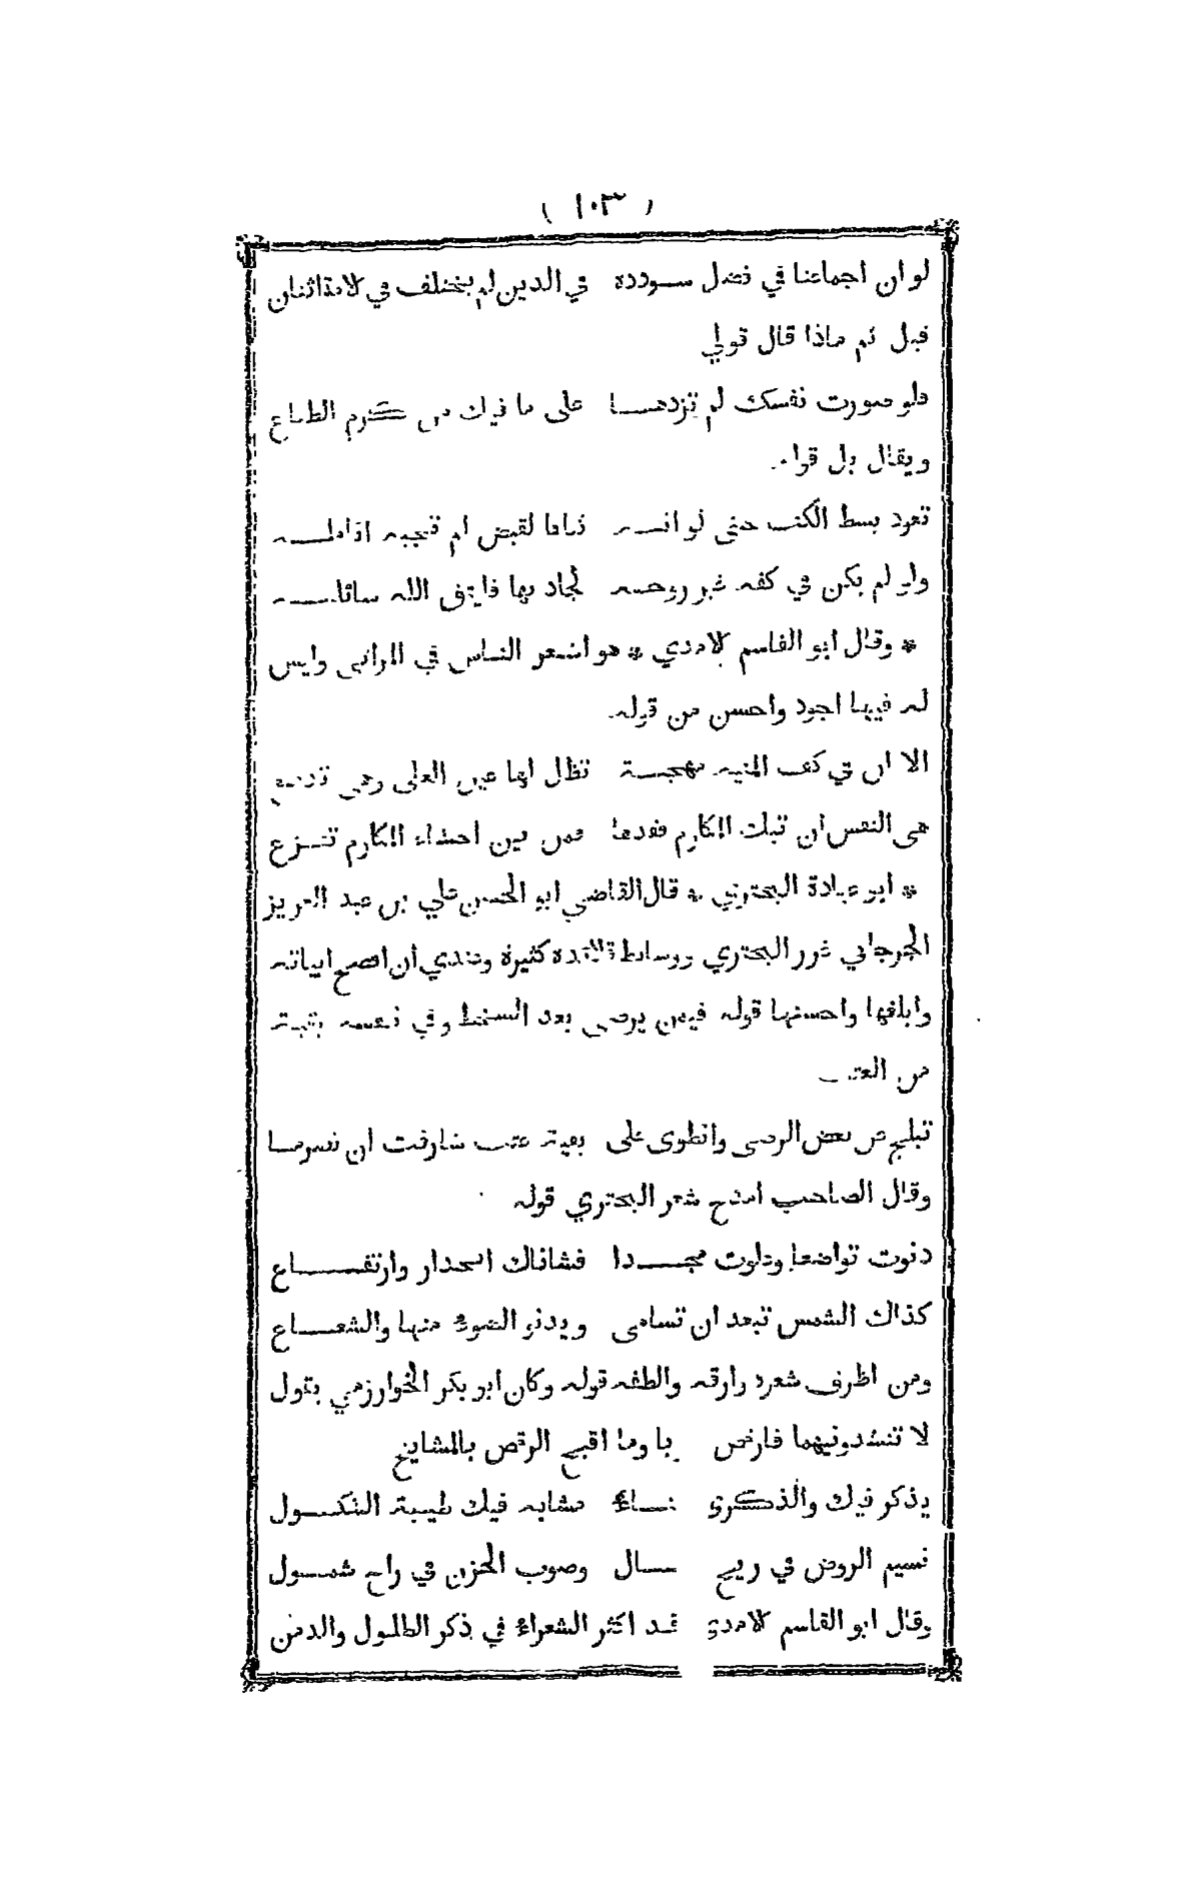 ( ١٠٣ )
لو ان اجماعنا في فضل سودده في الدين لم يختلف في لامة اثنان
قيل ثم ماذا قال قولي
فلو صورت نفسك لم تزدهـا على ما فيك من كرم الطباع
ويقال بل قوله
تعود بسط الكف حتى لو انـه ثناها لقبض لم تجبه انامله
ولو لم يكن في كفه غير روحه لجاد بها فليتق الله سائله
* وقال ابو القاسم لامدي * هو اشعر الناس في المراثي وليس
له فيها اجود واحسن من قوله
الا ان في كف المنيه مهجـة تظل لها عين العلى وهي تدمع
هي النفس ان تبك المكارم فقدها فمن بين احشاء المكارم تنـزع
* ابو عبادة البحتري * قال القاضي ابو الحسن علي بن عبد العزيز
الجرجاني غرر البحتري ووسائط قلائده كثيرة وعندي ان افصح ابياته
وابلغها واحسنها قوله فيمن يرضى بعد السخط وفي نفسه بقية
من العتب
تبلج عن بعض الرضى وانطوى على بقية عتب شارفت ان تصرما
وقال الصاحب امدح شعر البحتري قوله
دنوت تواضعا وعلوت مجـدا فشاناك انحدار وارتفـاع
كذاك الشمس تبعد ان تسامى ويدنو الضوء منها والشعـاع
ومن اظرف شعره وارقه والطفه قوله وكان ابو بكر الخوارزمي يقول
لا تنشدونيهما فارقص با وما اقبح الرقص بالمشايخ
يذكرنيك والذكرى عنـاء مشابه فيك طيبة الشكـول
نسيم الروض في ريح شمـال وصوب المزن في راح شمـول
وقال ابو القاسم لامدي قد اكثر الشعراء في ذكر الطلول والدمن